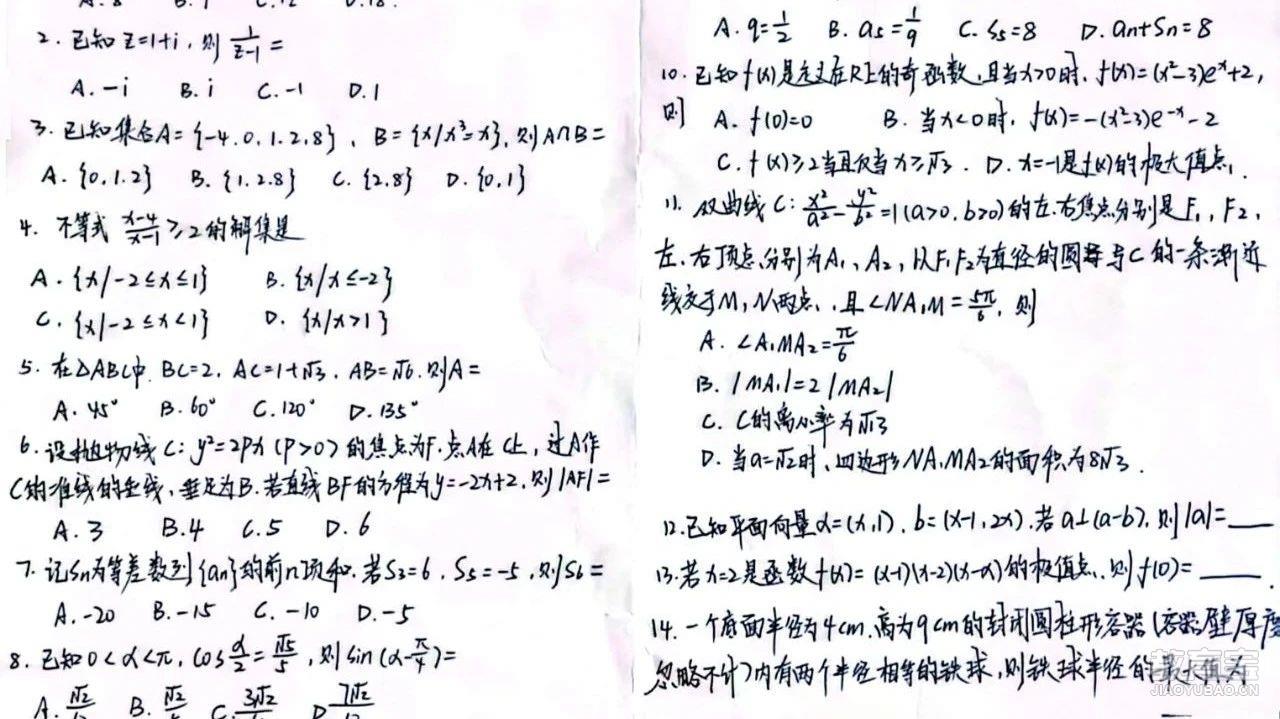 A. 8 B. 9 C. 12 D. 18.
2. 已知z=1+i, 则 1/(z-1) =
A. -i B. i C. -1 D. 1
3. 已知集合A={-4.0.1.2.8}, B={x|x³=x}, 则A∩B=
A. {0.1.2} B. {1.2.8} C. {2.8} D. {0.1}
4. 不等式 (x-4)/(x-1) ≥2的解集是
A. {x|-2≤x≤1} B. {x|x≤-2}
C. {x|-2≤x<1} D. {x|x>1}
5. 在△ABC中. BC=2. AC=1+√3. AB=√6. 则A=
A. 45° B. 60° C. 120° D. 135°
6. 设抛物线C: y²=2px (p>0) 的焦点为F. 点A在C上, 过A作
C的准线的垂线, 垂足为B. 若直线BF的方程为y=-2x+2, 则|AF|=
A. 3 B. 4 C. 5 D. 6
7. 记Sn为等差数列{an}的前n项和. 若S3=6, S5=-5, 则S6=
A. -20 B. -15 C. -10 D. -5
8. 已知0<α<π, cos α/2 = √5/5, 则sin(α-π/4)=
A. √2 B. √2 C. 3√2 D. 7√2
A. q=1/2 B. a5=1/9 C. S5=8 D. an+Sn=8
10. 已知f(x)是定义在R上的奇函数, 且当x>0时, f(x)=(x²-3)eˣ+2,
则 A. f(0)=0 B. 当x<0时, f(x)=-(x²-3)e⁻ˣ-2
C. f(x)≥2当且仅当x≥√3. D. x=-1是f(x)的极大值点.
11. 双曲线C: x²/a²-y²/b²=1(a>0, b>0)的左、右焦点分别是F1, F2,
左、右顶点分别为A1, A2, 以F1F2为直径的圆与C的一条渐近
线交于M, N两点, 且∠NA1M=5π/6, 则
A. ∠A1MA2=π/6
B. |MA1|=2|MA2|
C. C的离心率为√13
D. 当a=√2时, 四边形NA1MA2的面积为8√3.
12. 已知平面向量α=(x,1), b=(x-1,2x). 若a⊥(a-b). 则|a|=
13. 若x=2是函数f(x)=(x-1)(x-2)(x-α)的极值点. 则f(0)=
14. 一个底面半径为4cm, 高为9cm的封闭圆柱形容器(容器壁厚度
忽略不计)内有两个半径相等的铁球, 则铁球半径的最大值为
教育宝
JIAOYUBAO.CN